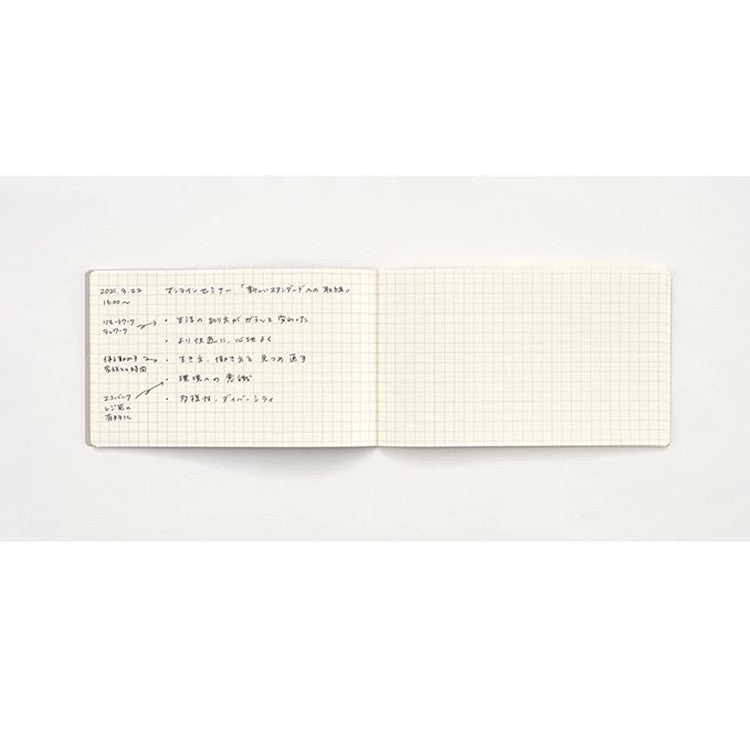 2021.3.22 オンラインセミナー「新しいスタンダードへの取組」
15:00〜
リモートワーク
テレワーク
・生活の在り方がガラッと変わった
・より快適に、心地よく
・生き方、働き方を見つめ直す
家族との時間
・環境への意識
エコバーグ
レジ袋の
有料化
・多様性・ダイバーシティ